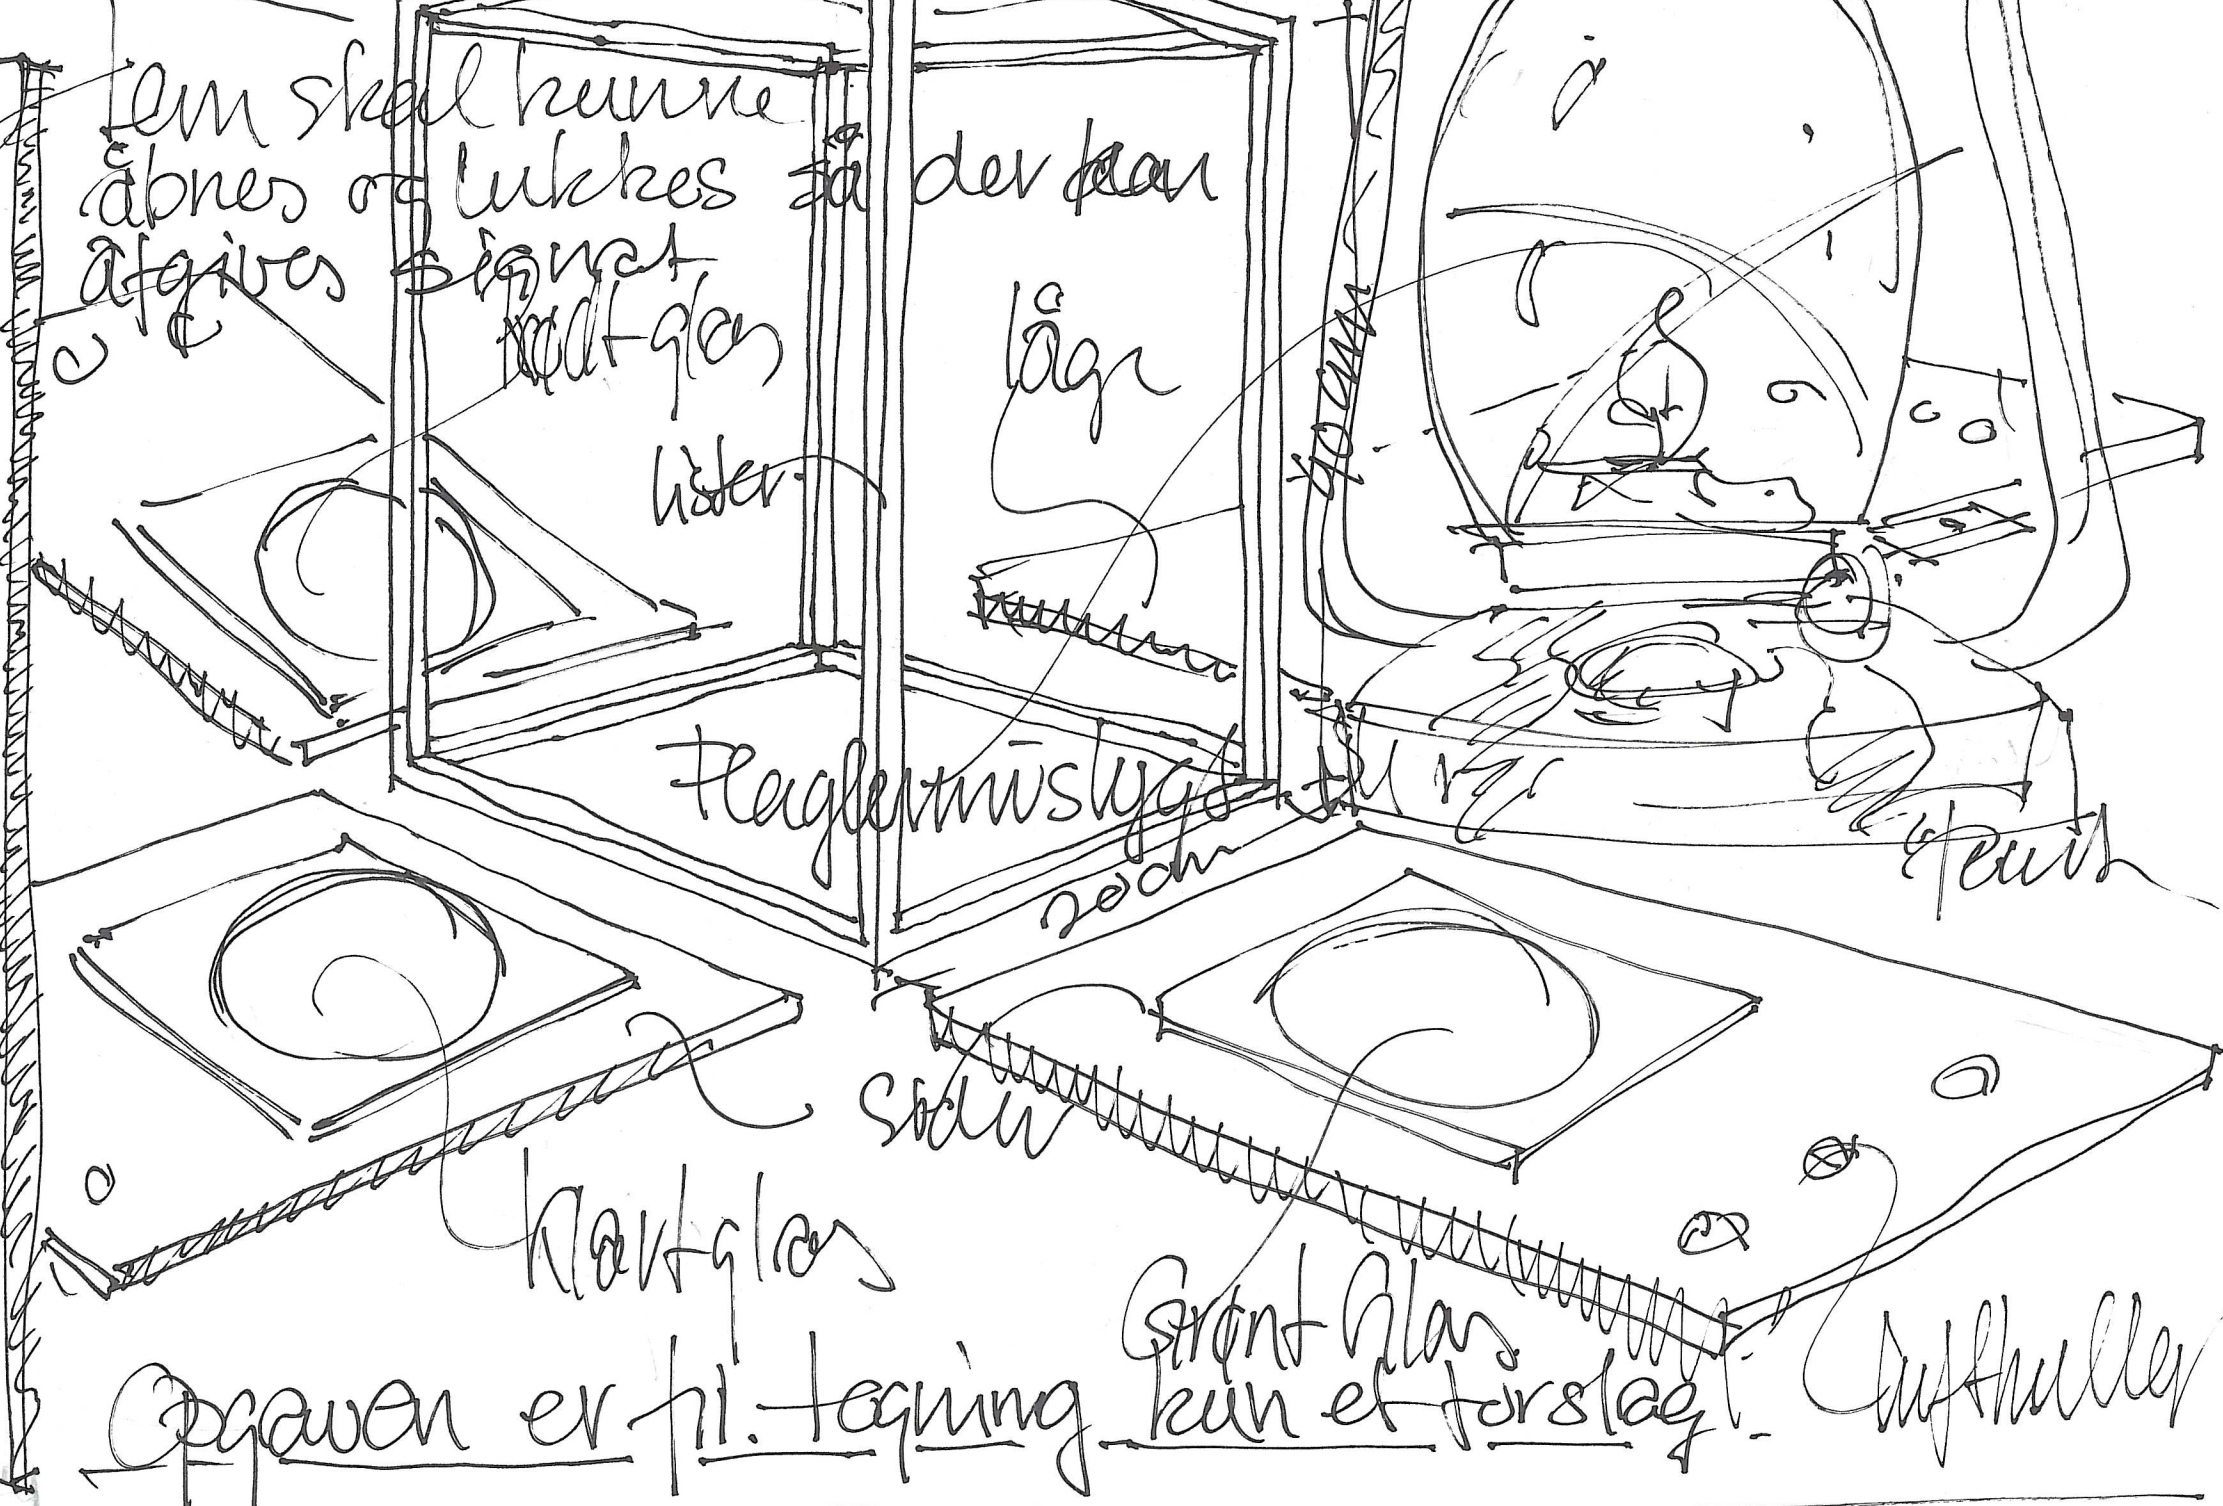 lem skal kunne
åbnes og lukkes så der kan
afgives signal
Rødt glas
låge
lister
40 cm
Flagermuslygt
20 cm
klart glas
Grønt Glas
Lufthuller
Opgaven er fri. tegning kun et forslag.